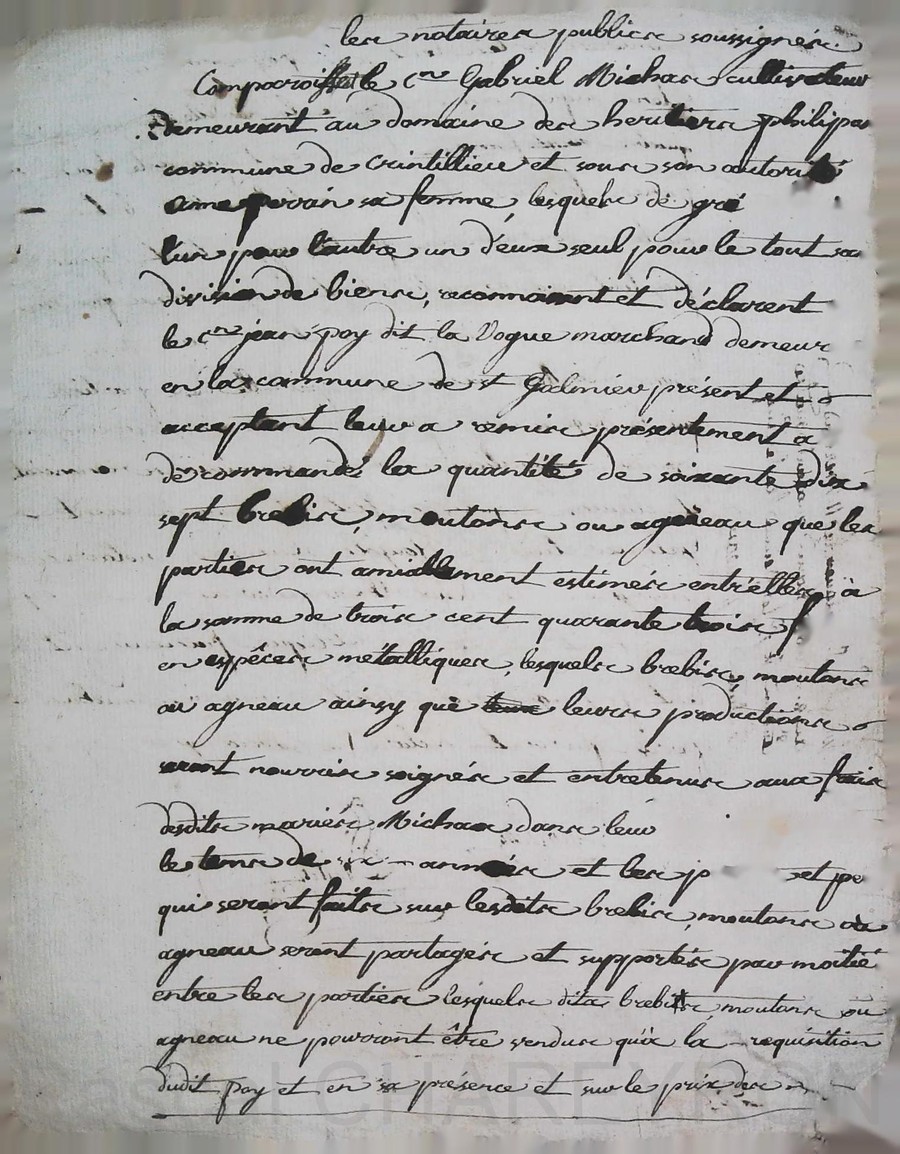 les notaires publics soussignés
Comparoissent le Cen Gabriel Michas cultivateur
demeurant au domaine des heritiers philipas
commune de Crintillieu et sous son autorité
anne perrin sa femme, lesquels de gré
l'un pour l'autre un d'eux seul pour le tout sa
division de biens, reconnoissent et déclarent
le Cen jean poy dit la Vogue marchand demeur
en la commune de st Galmier présent et
acceptant leur a remis présentement a
de commande la quantité de soixante dix
sept brebis, moutons ou agneau que les
parties ont amiablement estimés entr'elles à
la somme de trois cent quarante trois f
en espêces métalliques, lesquels brebis, moutons
ou agneau ainsy que leurs productions
seront nourris soignés et entretenus aux frais
desdits mariés Michas dans leur
le tems de six années et les p et pe
qui seront faits sur lesdits brebis, moutons ou
agneau seront partagés et supportés par moitié
entre les parties lesquels dits brebis, moutons ou
agneau ne pourront être vendus qu'à la requisition
dudit poy et en sa présence et sur le prix des